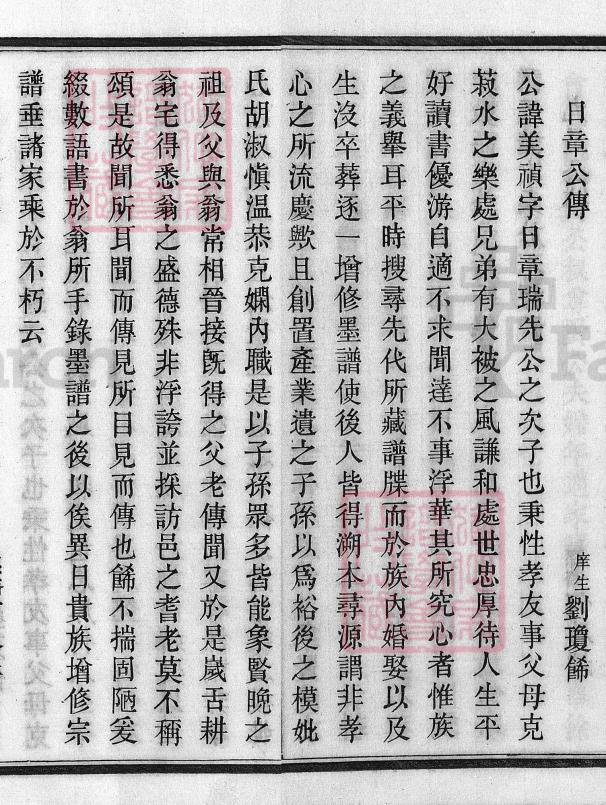 日章公傳
庠生劉瓊餙
公諱美禎字日章瑞先公之次子也秉性孝友事父母克
菽水之樂處兄弟有大被之風謙和處世忠厚待人生平
好讀書優游自適不求聞達不事浮華其所究心者惟族
之義舉耳平時搜尋先代所藏譜牒而於族內婚娶以及
生沒卒葬逐一增修墨譜使後人皆得溯本尋源謂非孝
心之所流慶歟且創置產業遺之子孫以爲裕後之模妣
氏胡淑愼温恭克嫻內職是以子孫眾多皆能象賢晚之
祖及父與翁常相晉接旣得之父老傳聞又於是歲舌耕
翁宅得悉翁之盛德殊非浮誇並採訪邑之耆老莫不稱
頌是故聞所耳聞而傳見所目見而傳也餙不揣固陋爰
綴數語書於翁所手錄墨譜之後以俟異日貴族增修宗
譜垂諸家乘於不朽云